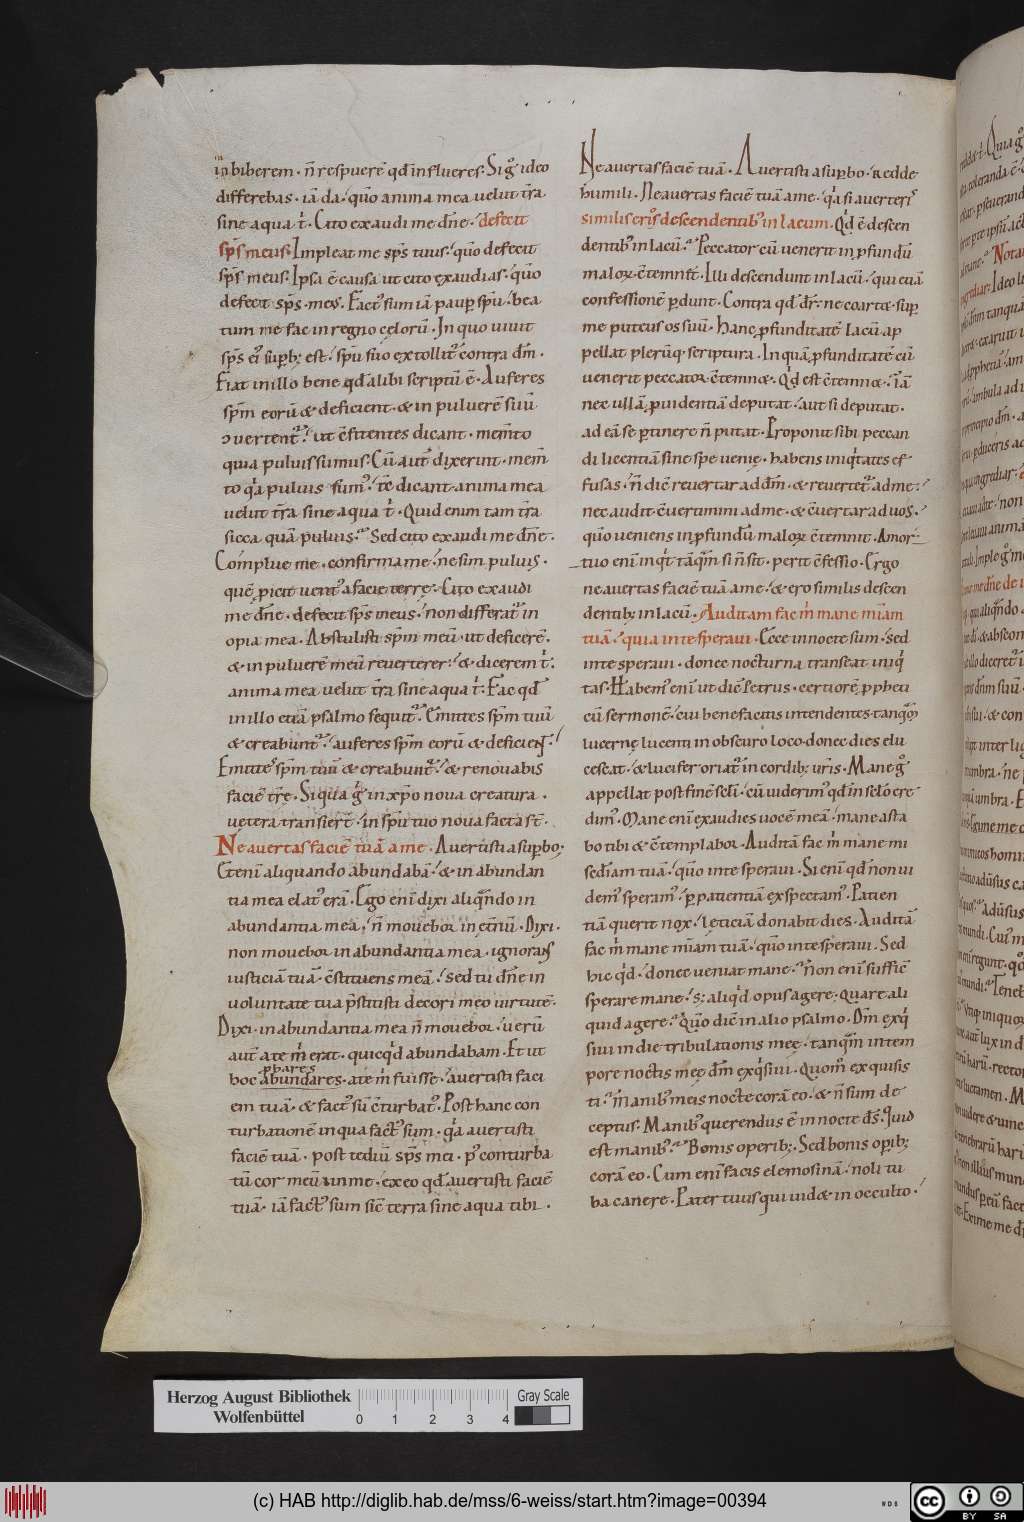 in biberem · n̄ respuerē qđ influeres · Sig̊ ideo
differebas · iā da · quo anima mea velut t̄ra
sine aqua t̍ · Cito exaudi me dn̄e · defecit
sp̄s meus · Impleat me sp̄s tuus · quo defecit
sp̄s meus · Ipsa ē causa ut cito exaudias · quō
defecit sp̄s meꝰ · Factꝰ sum iā paup̄ spū · bea
tum me fac in regno cęlorū · In quo uiuit
sp̄s eiꝰ sup̄bꝫ est · spū suo extollit̄ contra dm̄ ·
Fiat in illo bene qđ alibi scriptū ē · Auferes
spm̄ eorū & deficient · & in puluerē suū
ꝯuertent̄ · ut ꝯfitentes dicant · mem̄to
quia puluis sumus · Cū aut̄ dixerint · mem̄
to qa puluis sumꝰ · t̄c dicant anima mea
velut t̄ra sine aqua t̍ · Quid enim tam t̄ra
sicca quā puluis · Sed cito exaudi me dn̄e ·
Complue me · confirma me · ne sim puluis ·
quē ꝓicit uentꝰ a facie terrę · Cito exaudi
me dn̄e · defecit sp̄s meus · non differat̄ in
opia mea · Abstulisti spm̄ meū · ut deficerē ·
& in puluerē meū reuerterer · & dicerem t̍ ·
anima mea velut t̄ra sine aqua t̍ · Fac qđ
in illo etiā psalmo sequit̄ · Emittes spm̄ tuū
& creabunt̄ · auferes spm̄ eorū & deficient ·
Emittes spm̄ tuū & creabunt̄ · & renouabis
faciē t̄rę · Siqua g̍ in xp̄o noua creatura ·
vetera transier̄t · in spū tuo noua facta st̄ ·
Ne auertas faciē tuā a me · Auertisti a sup̄bo ·
Etenī aliquando abundabā · & in abundan
tia mea elatꝰ erā · Ego enī dixi aliqn̄do in
abundantia mea · n̄ mouebor in et̄nū · Dixi ·
non mouebor in abundantia mea · ignorans
iusticiā tuā · ꝯstituens meā · sed tu dn̄e in
voluntate tua p̄stitisti decori meo uirtutē ·
Dixi · in abundantia mea n̄ mouebor · uerū
aut̄ a te m̍ erat · quicqđ abundabam · Et ut
hoc abundares · a te m̍ fuisse · auertisti faci
em tuā · & factꝰ sū ꝯturbatꝰ · Post hanc con
turbationē in qua factꝰ sum · qa auertisti
faciē tuā · post tediū sp̄s mei · pꝰ conturba
tū cor meū in me · ex eo qđ auertisti faciē
tuā · iā factꝰ sum sic̄ terra sine aqua tibi ·
Ne auertas faciē tuā · Auertisti a sup̄bo · redde
humili · Ne auertas faciē tuā a me · qa si auerteris
similis erꝰ descendentibꝰ in lacum · Qđ ē descen
dentibꝰ in lacū · Peccator cū venerit in ꝓfundū
maloꝝ ꝯtemnit · Illi descendunt in lacū · qui etiā
confessionē p̱dunt · Contra qđ dr̄ · ne coartet sup̄
me puteus os suū · Hanc ꝓfunditatē lacū ap
pellat plerūq; scriptura · In quā ꝓfunditatē cū
uenerit peccator ꝯtemnet · Qđ est ꝯtemnet · Iā
nec ullā ꝓuidentiā deputat · aut si deputat ·
ad eā se p̱tinere n̄ putat · Proponit sibi peccan
di licentiā sine spe venię · habens iniqtates ef
fusas · n̄ dic̄ reuertar ad dm̄ · & reuertet̄ ad me ·
nec audit ꝯuertimini ad me · & ꝯuertar ad uos ·
quō veniens in ꝓfundū maloꝝ ꝯtemnit · A mor
tuo enī inqt tāq̄m si n̄ sit · perit ꝯfessio · Ergo
ne auertas faciē tuā a me · & ero similis descen
dentibꝫ in lacū · Auditam fac m̍ mane mīam
tuā · quia in te speraui · Ecce in nocte sum · sed
in te speraui · donec nocturna transeat iniq
tas · Habemꝰ enī ut dic̄ petrus · certiorē ꝓpheti
cū sermonē · cui bene facitis intendentes · tanq̄m
lucernę lucenti in obscuro loco donec dies elu
cescat · & lucifer oriat̄ in cordibꝫ ur̄is · Mane g̊
appellat post finē sc̄li · cū uiderimꝰ qđ in sc̄lo cre
dimꝰ · Mane enī exaudies uocē meā · mane asta
bo tibi & ꝯtemplabor · Auditā fac m̍ mane mi
sc̄diam tuā · quō in te speraui · Si enī qđ non ui
demꝰ speramꝰ · p̱ patientiā exspectamꝰ · Patien
tiā querit nox · leticiā donabit dies · Auditā
fac m̍ mane mīam tuā · quō in te speraui · Sed
hic qđ · donec veniat mane · n̄on enī suffic̄
sperare mane · s; aliqđ opus agere · Quare ali
quid agere · Quō dic̄ in alio psalmo · Dm̄ exq
siui in die tribulationis meę · tanq̄m in tem
pore noctis meę dm̄ exqsiui · Quom̊ exquisis
ti · manibꝰ meis nocte corā eo · & n̄ sum de
ceptus · Manibꝰ querendus ē in nocte ds̄ · Quid
est manibꝰ · Bonis operibꝫ · Sed bonis op̱ibꝫ
corā eo · Cum enī facis elemosinā · noli tu
ba canere · Pater tuus qui uidet in occulto ·
Herzog August Bibliothek
Wolfenbüttel
0 1 2 3 4
Gray Scale
(c) HAB http://diglib.hab.de/mss/6-weiss/start.htm?image=00394
WDB
cc
BY SA